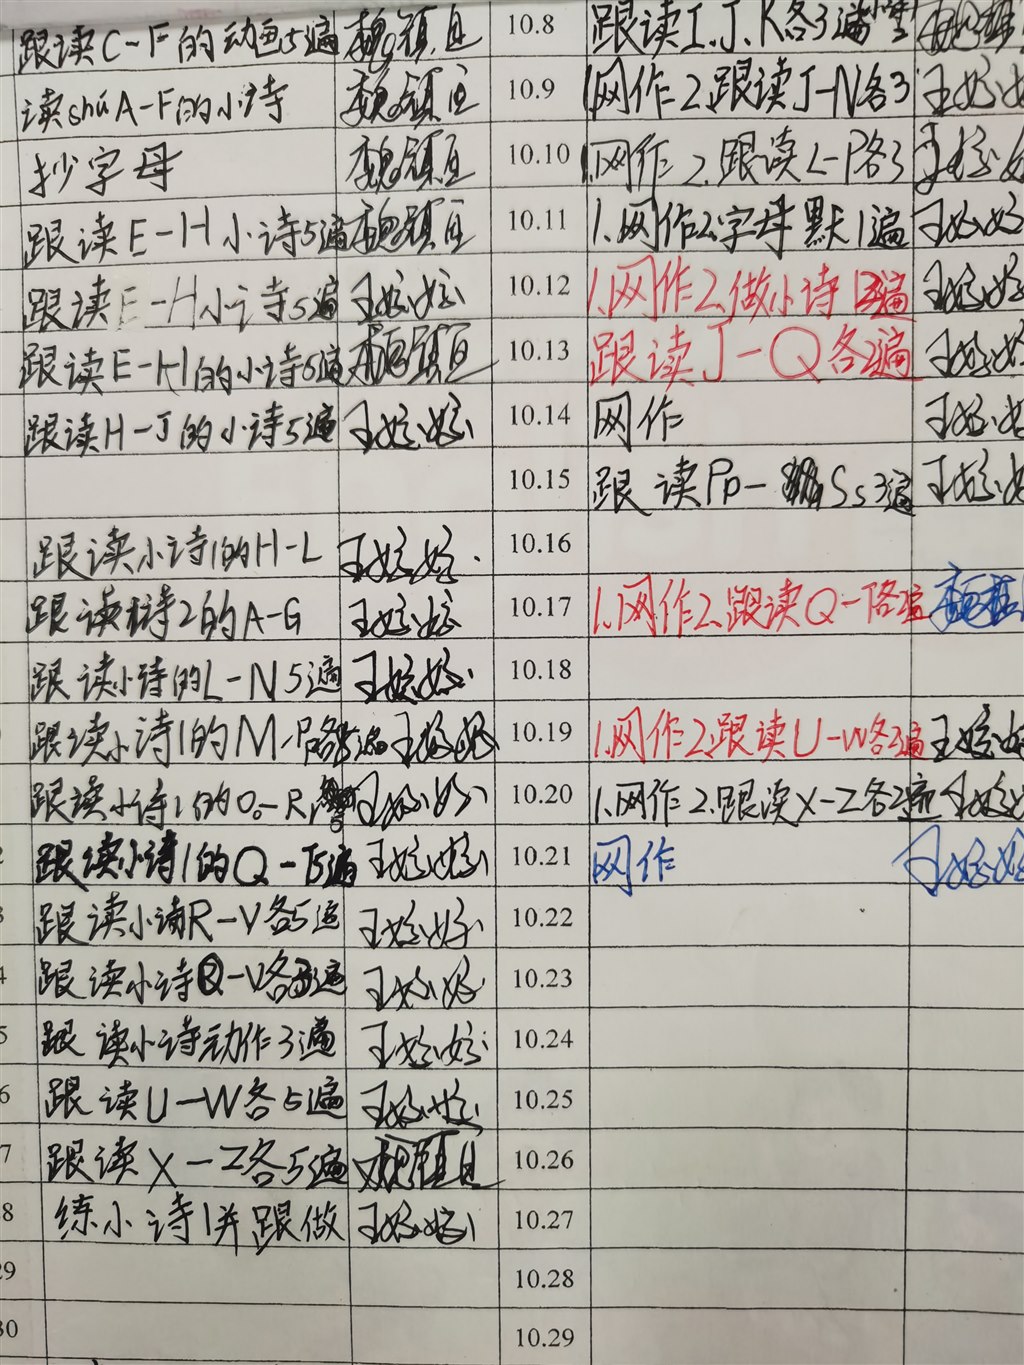 跟读C-F的动画5遍 10.8 跟读I.J.K各3遍
读shū A-F的小诗 10.9 1.网作2.跟读J-N各3 王好好
抄字母 10.10 1.网作2.跟读L-P各3 王好好
跟读E-H小诗5遍 10.11 1.网作2.字母默1遍 王好好
跟读E-H小诗5遍 王好好 10.12 1.网作2.做小诗1 遍 王好好
跟读E-H的小诗5遍 10.13 跟读J-Q各2遍 王好好
跟读H-J的小诗5遍 王好好 10.14 网作 王好好
10.15 跟读Pp-Ss3遍 王好好
跟读小诗1的H-L 王好好 10.16
跟读小诗2的A-G 王好好 10.17 1.网作2.跟读Q-T各3遍
跟读小诗的L-N5遍 王好好 10.18
跟读小诗1的M-P各5遍 王好好 10.19 1.网作2.跟读U-W各3遍 王好好
跟读小诗1的O-R 王好好 10.20 1.网作2.跟读X-Z各2遍 王好好
2 跟读小诗1的Q-T5遍 王好好 10.21 网作 王好好
3 跟读小诗R-V各5遍 王好好 10.22
4 跟读小诗R-V各3遍 王好好 10.23
5 跟读小诗动作3遍 王好好 10.24
6 跟读U-W各5遍 王好好 10.25
7 跟读X-Z各5遍 10.26
8 练小诗1并跟做 王好好 10.27
29 10.28
30 10.29